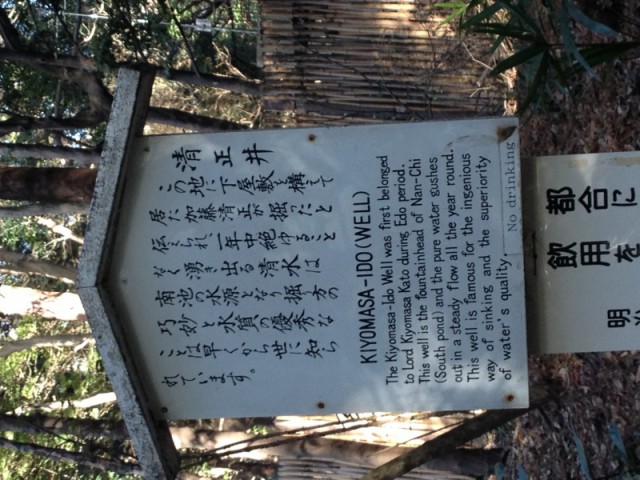 清正井
この地に下屋敷を構えて
居た加藤清正が掘ったと
伝えられ一年中絶ゆること
なく湧き出る清水は
南池の水源となり掘り方の
巧妙と水質の優秀な
ことは早くから世に知ら
れています。
KIYOMASA-IDO (WELL)
The Kiyomasa-Ido Well was first belonged
to Lord Kiyomasa Kato during Edo period.
This well is the fountainhead of Nan-Chi
(South pond) and the pure water gushes
out in a steady flow all the year round.
This well is famous for the ingenious
way of sinking and the superiority
of water's quality.
No drinking
都合に
飲用を
明治